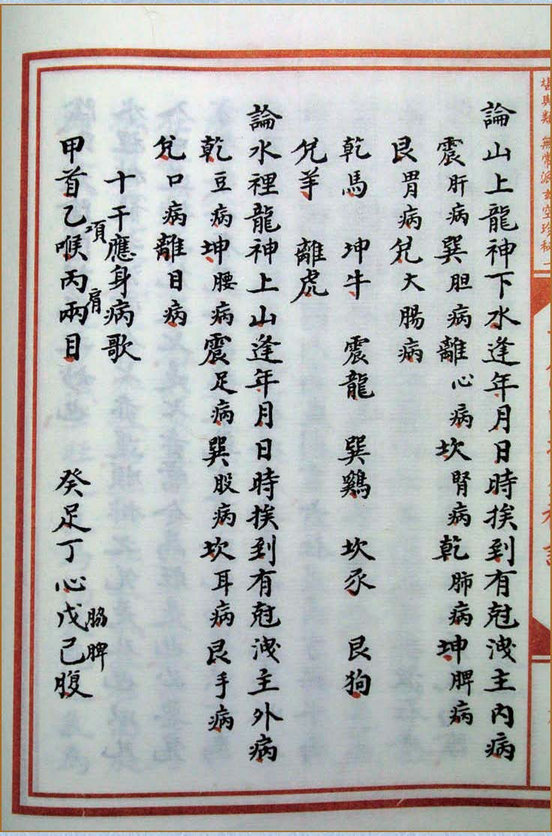 堪輿類 無常派玄空珍秘一
論山上龍神下水逢年月日時挨到有尅洩主內病
震肝病巽胆病離心病坎腎病乾肺病坤脾病
艮胃病兌大腸病
乾馬 坤牛 震龍 巽鷄 坎豕 艮狗
兌羊 離虎
論水裡龍神上山逢年月日時挨到有尅洩主外病
乾豆病坤腰病震足病巽股病坎耳病艮手病
兌口病離目病
十干應身病歌
項 肩 脇脾
甲首乙喉丙兩目 癸足丁心戊己腹